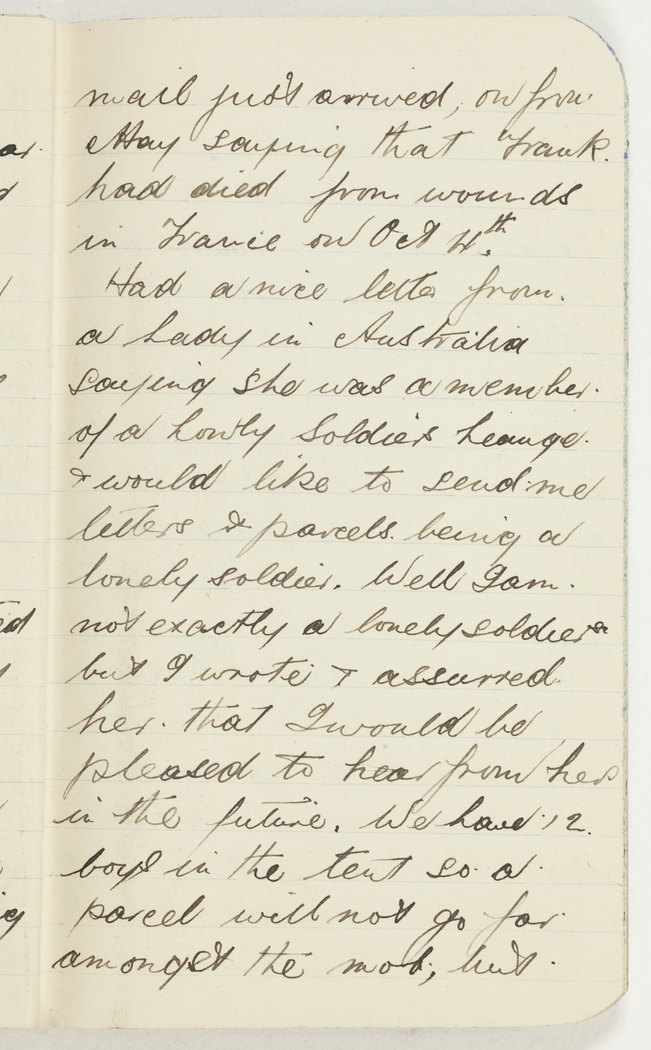 mail just arrived, on from
May saying that Frank.
had died from wounds
in France on Oct 4th.
Had a nice letter from.
a Lady in Australia
saying she was a member.
of a lonly Soldiers league.
& would like to send me
letters & parcels. being a
lonely soldier. Well I am.
not exactly a lonely soldier
but I wrote & assurred
her. that I would be
pleased to hear from her
in the future. We have 12.
boys in the tent so. a.
parcel will not go far
amongst the mob, but.